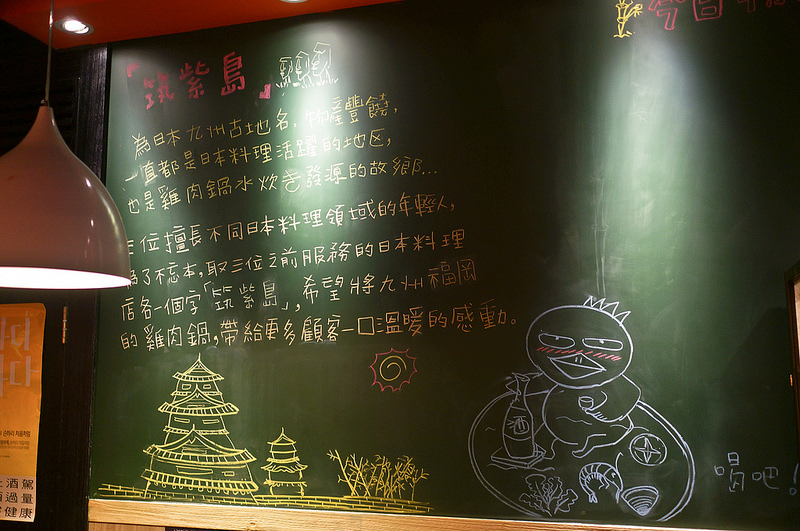 「筑紫島」
今日
為日本九州古地名,物產豐饒,
一直都是日本料理活躍的地区,
也是雞肉鍋水炊き發源的故鄉...
三位擅長不同日本料理領域的年輕人,
為了不忘本,取三位之前服務的日本料理
店各一個字「筑紫島」,希望將九州福岡
的雞肉鍋,帶給更多顧客一口溫暖的感動。
酒
喝吧!
酒駕
過量
健康